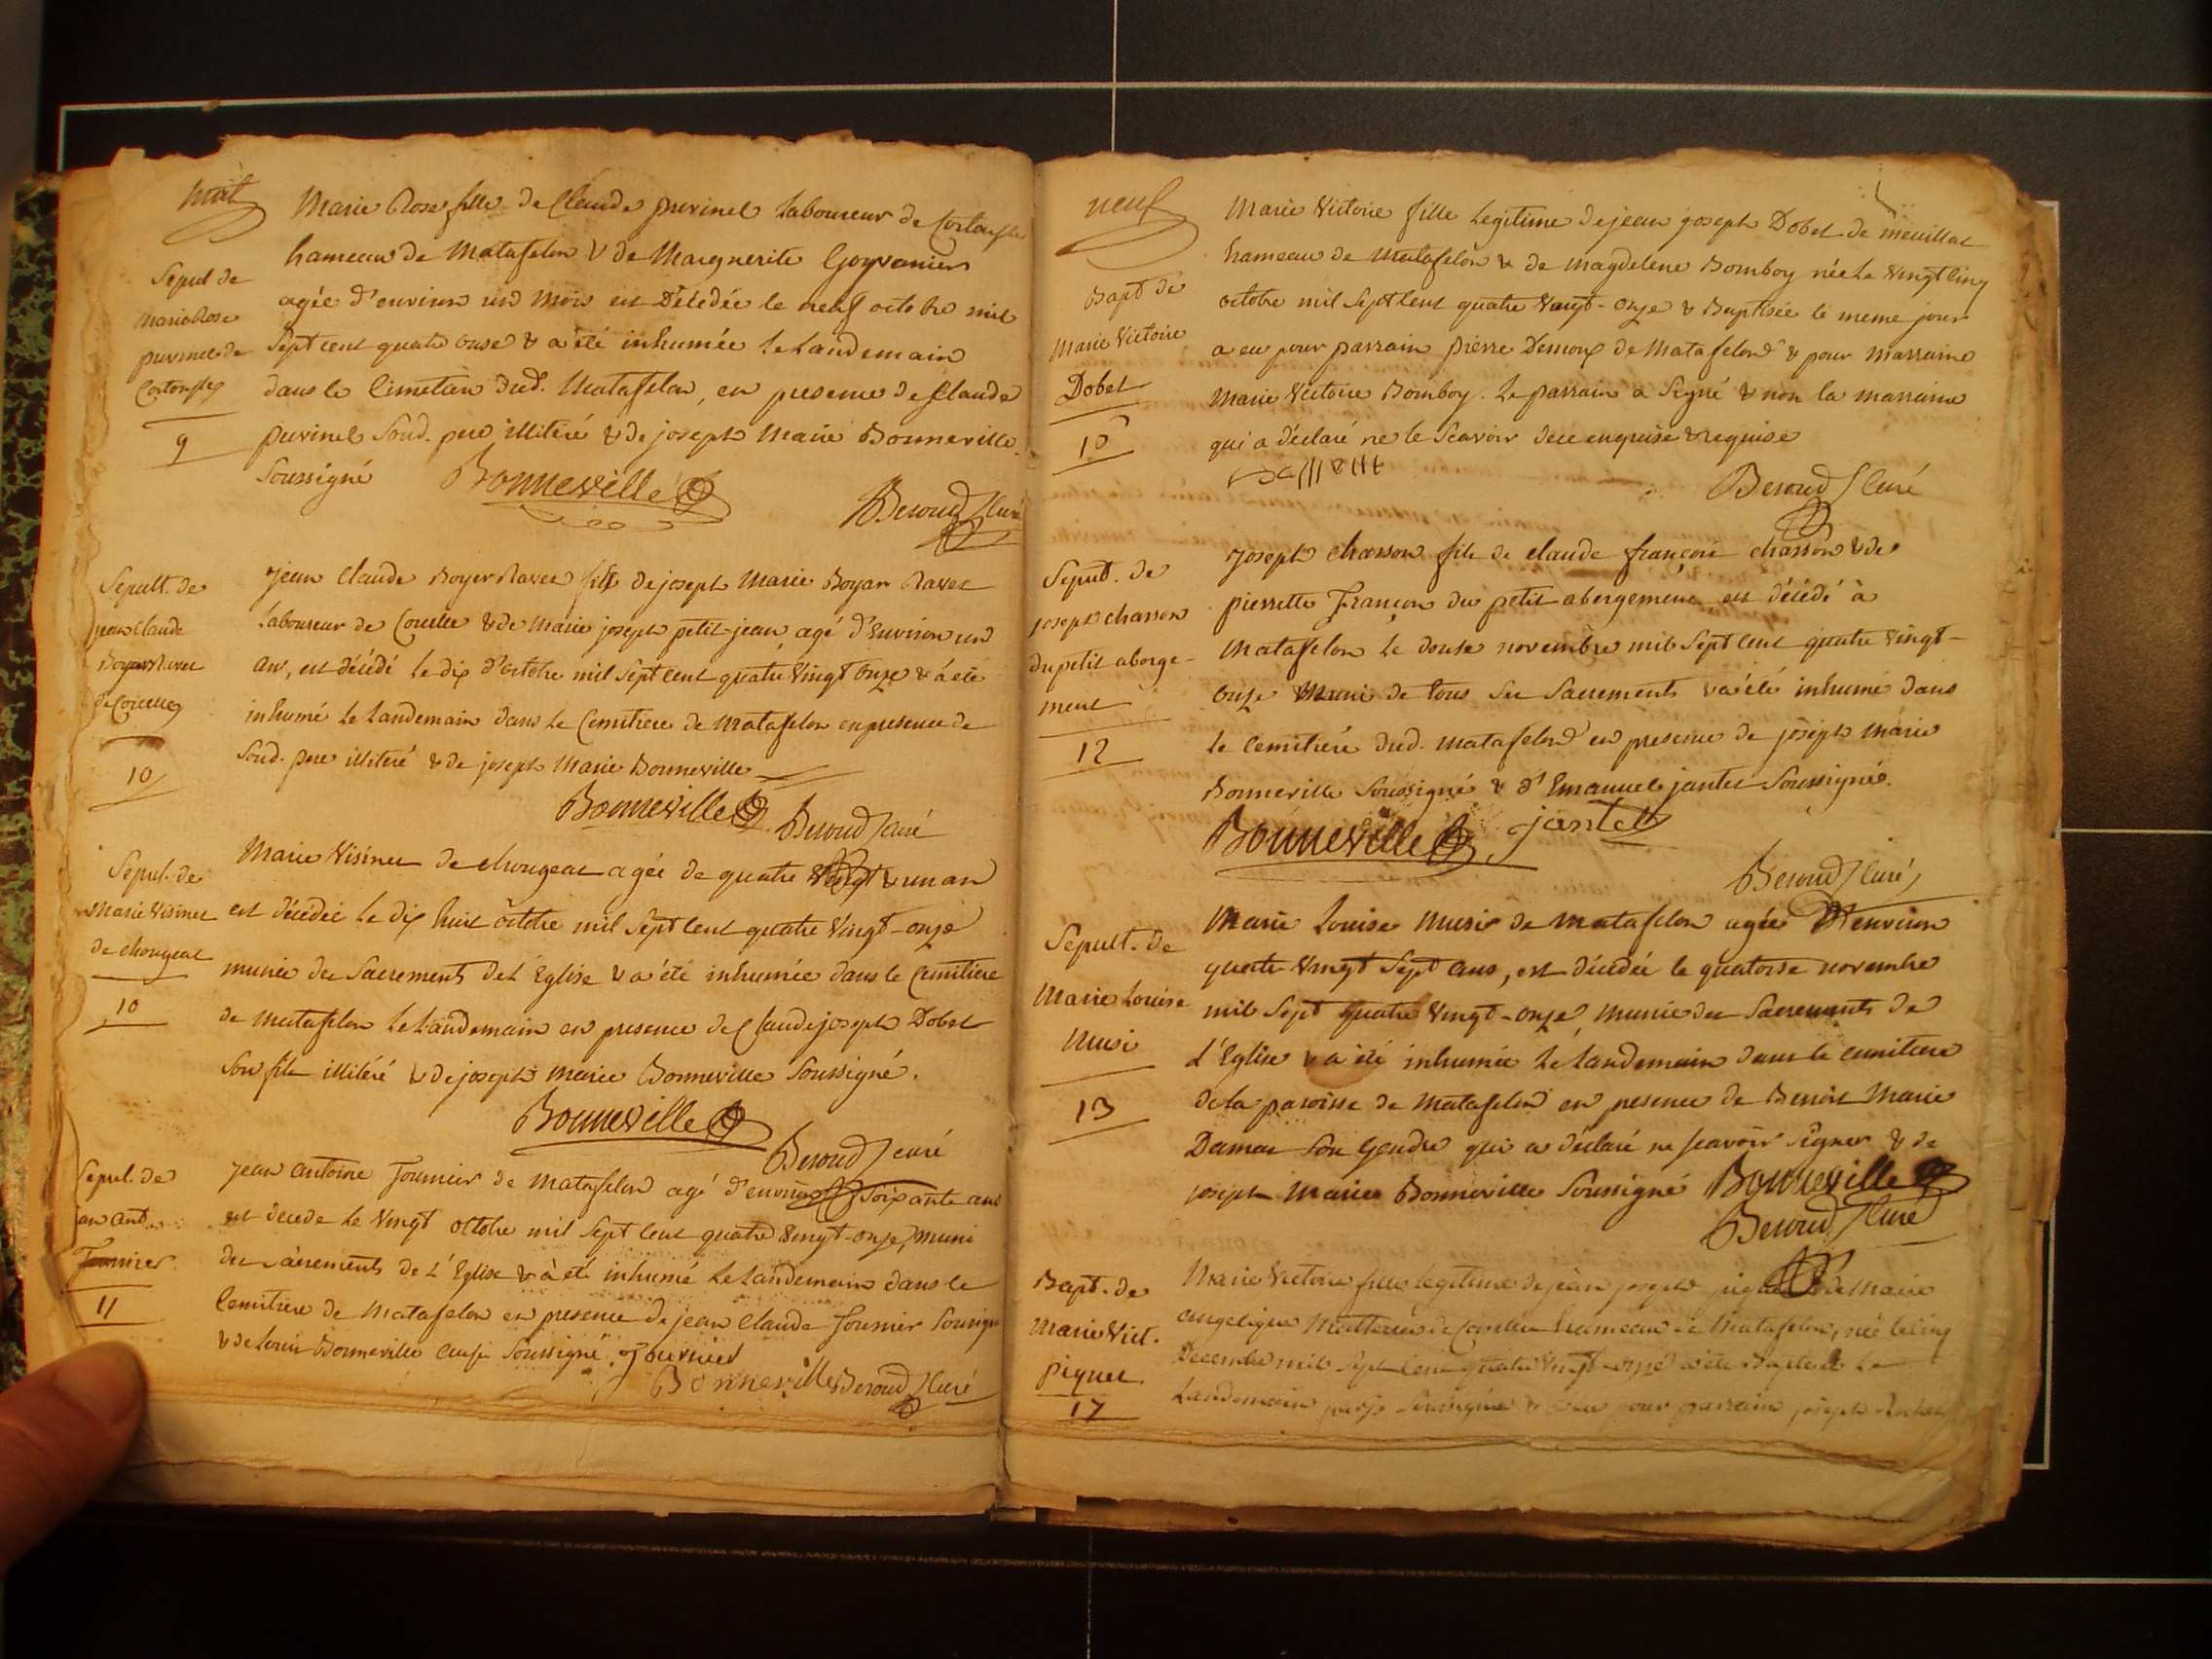 huit
Marie Rose fille de Claude puvinel Laboureur de
hameau de Matafelon & de Margueritte
agée d'environ und mois est Décédée le neuf octobre mil
Sept cent quatre onse & a été inhumée le Landemain
dans le Cimetiere dud. Matafelon, en presence de Claude
puvinel Soud. pere illiteré & de joseph Marie Bonneville
Soussigné Bonneville
Beroud Curé
Sepul de
Marie Rose
puvinel de
9
jean Claude Boyer Ravet fils de joseph Marie Boyer Ravet
Laboureur de & de Marie joseph petit-jean agé d'Environ und
an, est décédé le dix d'octobre mil Sept cent quatre Vingt Onze & a été
inhumé le Landemain dans le Cemitiere de Matafelon en presence de
Soud. pere illiteré & de joseph Marie Bonneville
Bonneville Beroud curé
Sepult. de
jean Claude
Ravet
10
Marie Visinet de chougeat agée de quatre Vingt & un an
est décédée le dix huit octobre mil Sept Cent quatre Vingt-onze
munie des Sacrements de L'Eglise & a été inhumée dans le Cemitiere
de Matafelon le Landemain en presence de Claude joseph Dobet
Son fils illitéré & de joseph Marie Bonneville Soussigné.
Bonneville
Beroud curé
Sepul. de
Marie Visinet
de chougeat
10
jean antoine Fournier de Matafelon agé d'environ Soixante ans
est decede le Vingt octobre mil Sept Cent quatre Vingt-onze, muni
des Sacrements de L'Eglise & a été inhumé le Landemain dans le
Cemitiere de Matafelon en presence de jean Claude Fournier Soussigné
& de Louis Bonneville aussi Soussigné. Fournier
Bonneville Beroud Curé
Sepul. de
Fournier
11
neuf
Marie Victoire fille Legitime de jean joseph Dobet de meuillat
hameau de Matafelon & de Magdelene Bomboy née le Vingt Cinq
octobre mil Sept Cent quatre Vingt-onze & Baptisée le meme jour
a eu pour parrain pierre Demoux de Matafelon & pour marraine
Marie Victoire Bomboy. Le parrain a Signé & non la marraine
qui a déclaré ne le Scavoir de ce enquise & requise
Beroud Curé
Bapt de
Marie Victoire
Dobet
10
joseph chasson fils de claude françois chasson & de
pierrette françon du petit abergement est décédé à
Matafelon le douse novembre mil Sept Cent quatre Vingt-
Onze Muni de tous Ses Sacrements & a été inhumé dans
le Cemitiere dud. Matafelon en presence de joseph Marie
Bonneville Soussigné & d'Emanuel jantet Soussigné.
Bonneville jantet
Beroud Curé
Sepult. de
joseph chasson
du petit aberge-
ment
12
Marie Louise Musi de Matafelon agée D'environ
quatre Vingt Sept ans, est décédée le quatorse novembre
mil Sept quatre Vingt-onze, munie des Sacrements de
L'Eglise & a été inhumée le Landemain dans le cemitiere
de la paroisse de Matafelon en presence de Benoit Marie
Damas Son gendre qui a déclaré ne scavoir Signer & de
joseph Marie Bonneville Soussigné Bonneville
Beroud Curé
Sepult. de
Marie Louise
Musi
13
Marie Victoire fille Legitime de jean joseph & de Marie
angelique de hameau de Matafelon, née le cinq
Decembre mil Sept Cent quatre Vingt-onze a été Baptisée le
Landemain par je Soussigné & a eu pour parrain joseph
Bapt. de
Marie Vict.
piquet
17